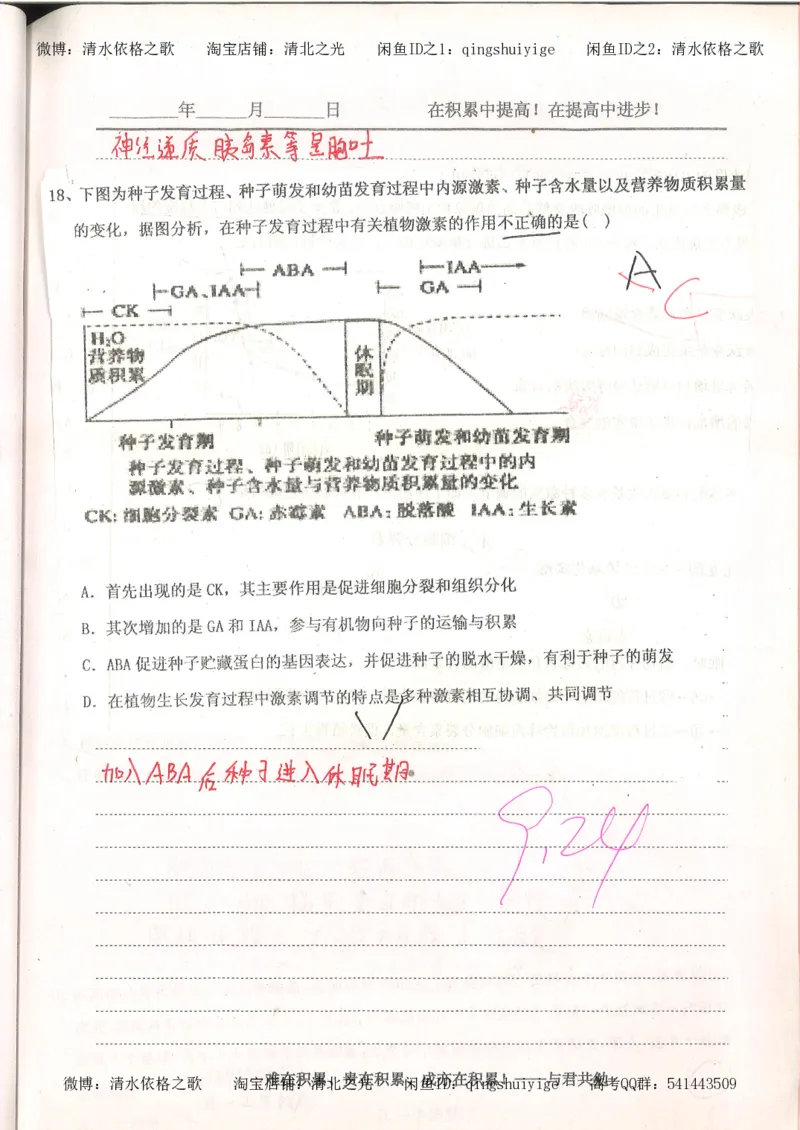 微博：清水依格之歌 淘宝店铺：清北之光 闲鱼ID之1：qingshuiyige 闲鱼ID之2：清水依格之歌
______年______月______日 在积累中提高！在提高中进步！
神经递质 胰岛素等是胞吐
18、下图为种子发育过程、种子萌发和幼苗发育过程中内源激素、种子含水量以及营养物质积累量
的变化，据图分析，在种子发育过程中有关植物激素的作用不正确的是( )
A C
ABA IAA
GA、IAA GA
CK
H₂O
营养物
质积累
休眠期
种子发育期 种子萌发和幼苗发育期
种子发育过程、种子萌发和幼苗发育过程中的内
源激素、种子含水量与营养物质积累量的变化
CK：细胞分裂素 GA：赤霉素 ABA：脱落酸 IAA：生长素
A．首先出现的是CK，其主要作用是促进细胞分裂和组织分化
B．其次增加的是GA和IAA，参与有机物向种子的运输与积累
C．ABA促进种子贮藏蛋白的基因表达，并促进种子的脱水干燥，有利于种子的萌发
D．在植物生长发育过程中激素调节的特点是多种激素相互协调，共同调节
加入ABA后种子进入休眠期
9,24
难在积累，贵在积累，成亦在积累！——与君共勉
微博：清水依格之歌 淘宝店铺：清北之光 闲鱼ID：qingshuiyige 高考QQ群：541443509